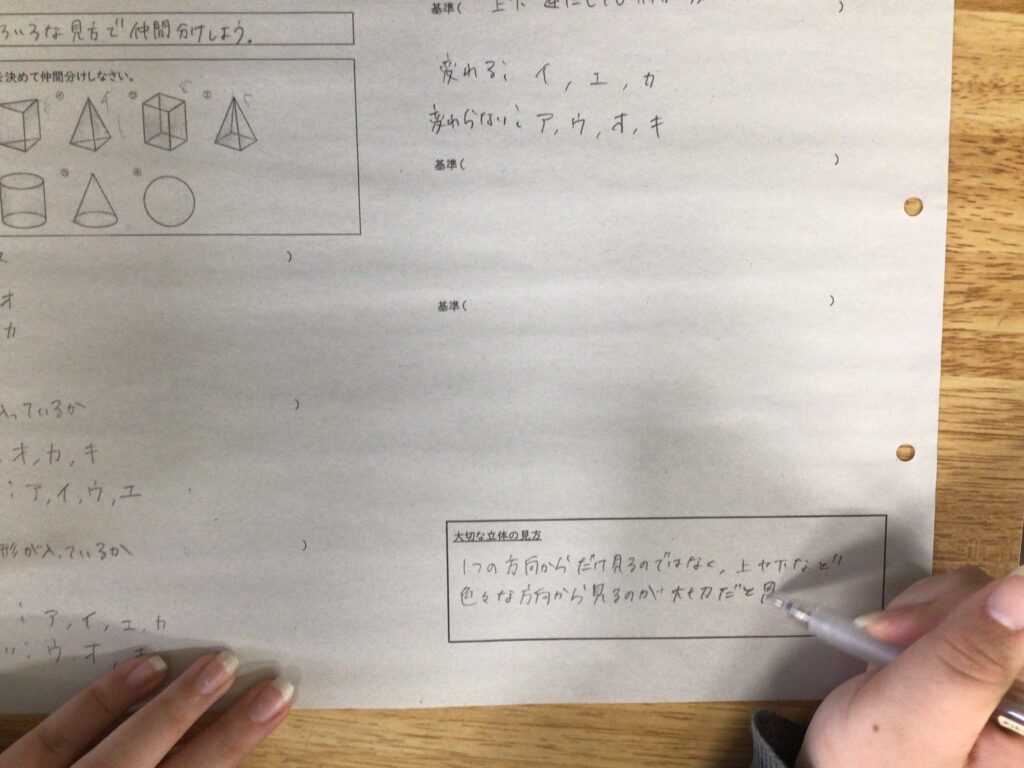 ろいろな見方で仲間分けしよう。
を決めて仲間分けしなさい。
6 4 8 5
)
オ
カ
入っているか )
オ,カ,キ
: ア,イ,ウ,エ
形が入っているか )
: ア,イ,エ,カ
: ウ,オ,
基準( 上下 )
変わる: イ,エ,カ
変わらない: ア,ウ,オ,キ
基準( )
基準( )
大切な立体の見方
1つの方向からだけ見るのではなく、上や下など
色々な方向から見るのが大切だと